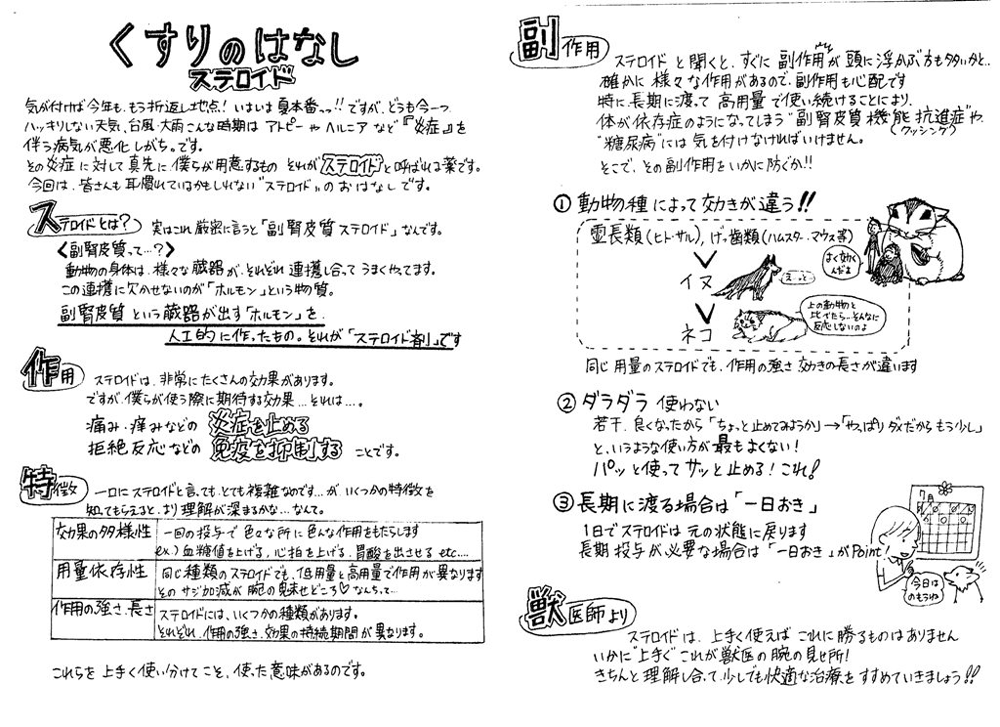 くすりのはなし
ステロイド
気が付けば今年も、もう折り返し地点！いよいよ夏本番っっ!!ですが、どうも今一つ
ハッキリしない天気、台風・大雨こんな時期は アトピーや ヘルニア など『炎症』を
伴う病気が悪化しがち。です。
その炎症に対して真先に、僕らが用意するもの それがステロイドと呼ばれる薬です。
今回は、皆さんも耳慣れているかもしれない"ステロイド"のおはなしです。
ステロイドとは？
実はこれ厳密に言うと「副腎皮質ステロイド」なんです。
〈副腎皮質って…？〉
動物の身体は、様々な臓器が、それぞれ連携し合ってうまくやってます。
この連携に欠かせないのが「ホルモン」という物質。
副腎皮質という臓器が出す「ホルモン」を、
人工的に作ったもの。それが「ステロイド剤」です
作用
ステロイドは、非常にたくさんの効果があります。
ですが、僕らが使う際に期待する効果…それは…。
痛み・痒みなどの 炎症を止める
拒絶反応などの 免疫を抑制する ことです。
特徴
一口にステロイドと言っても、とても複雑なのです…が、いくつかの特徴を
知ってもらえると、より理解が深まるかな…なんて。
効果の多様性
一回の投与で色々な所に色んな作用をもたらします
ex.）血糖値を上げる、心拍を上げる、胃酸を出させる etc....
用量依存性
同じ種類のステロイドでも、低用量と高用量で作用が異なります
そのサジ加減が腕の見せどころ♡なんちって…
作用の強さ、長さ
ステロイドには、いくつかの種類があります。
それぞれ、作用の強さ、効果の持続期間が異なります。
これらを上手く使い分けてこそ、使った意味があるのです。
副作用
ステロイドと聞くと、すぐに副作用が頭に浮かぶ方も多いかと…
確かに様々な作用があるので、副作用も心配です
特に、長期に渡って高用量で使い続けることにより、
体が依存症のようになってしまう"副腎皮質機能抗進症"や
(クッシング)
"糖尿病"には気を付けなければいけません。
そこで、その副作用をいかに防ぐか!!
① 動物種によって効きが違う!!
霊長類（ヒト・サル）、げっ歯類（ハムスター・マウス等）
よく効くんだよ
イヌ
ネコ
上の動物と
比べたら…そんなに
反応しないのよ
同じ用量のステロイドでも、作用の強さ 効きの長さが違います
② ダラダラ使わない
若干、良くなったから「ちょっと止めてみようか」→「やっぱりダメだからもう少し」
と、いうような使い方が最もよくない！
パッと使ってサッと止める！これ！
③ 長期に渡る場合は「一日おき」
1日でステロイドは元の状態に戻ります
長期投与が必要な場合は「一日おき」がPoint
7月
今日は
のもうね
獣医師より
ステロイドは、上手く使えばこれに勝るものはありません
いかに"上手く"これが獣医の腕の見せ所！
きちんと理解し合って、少しでも快適な治療をすすめていきましょう!!